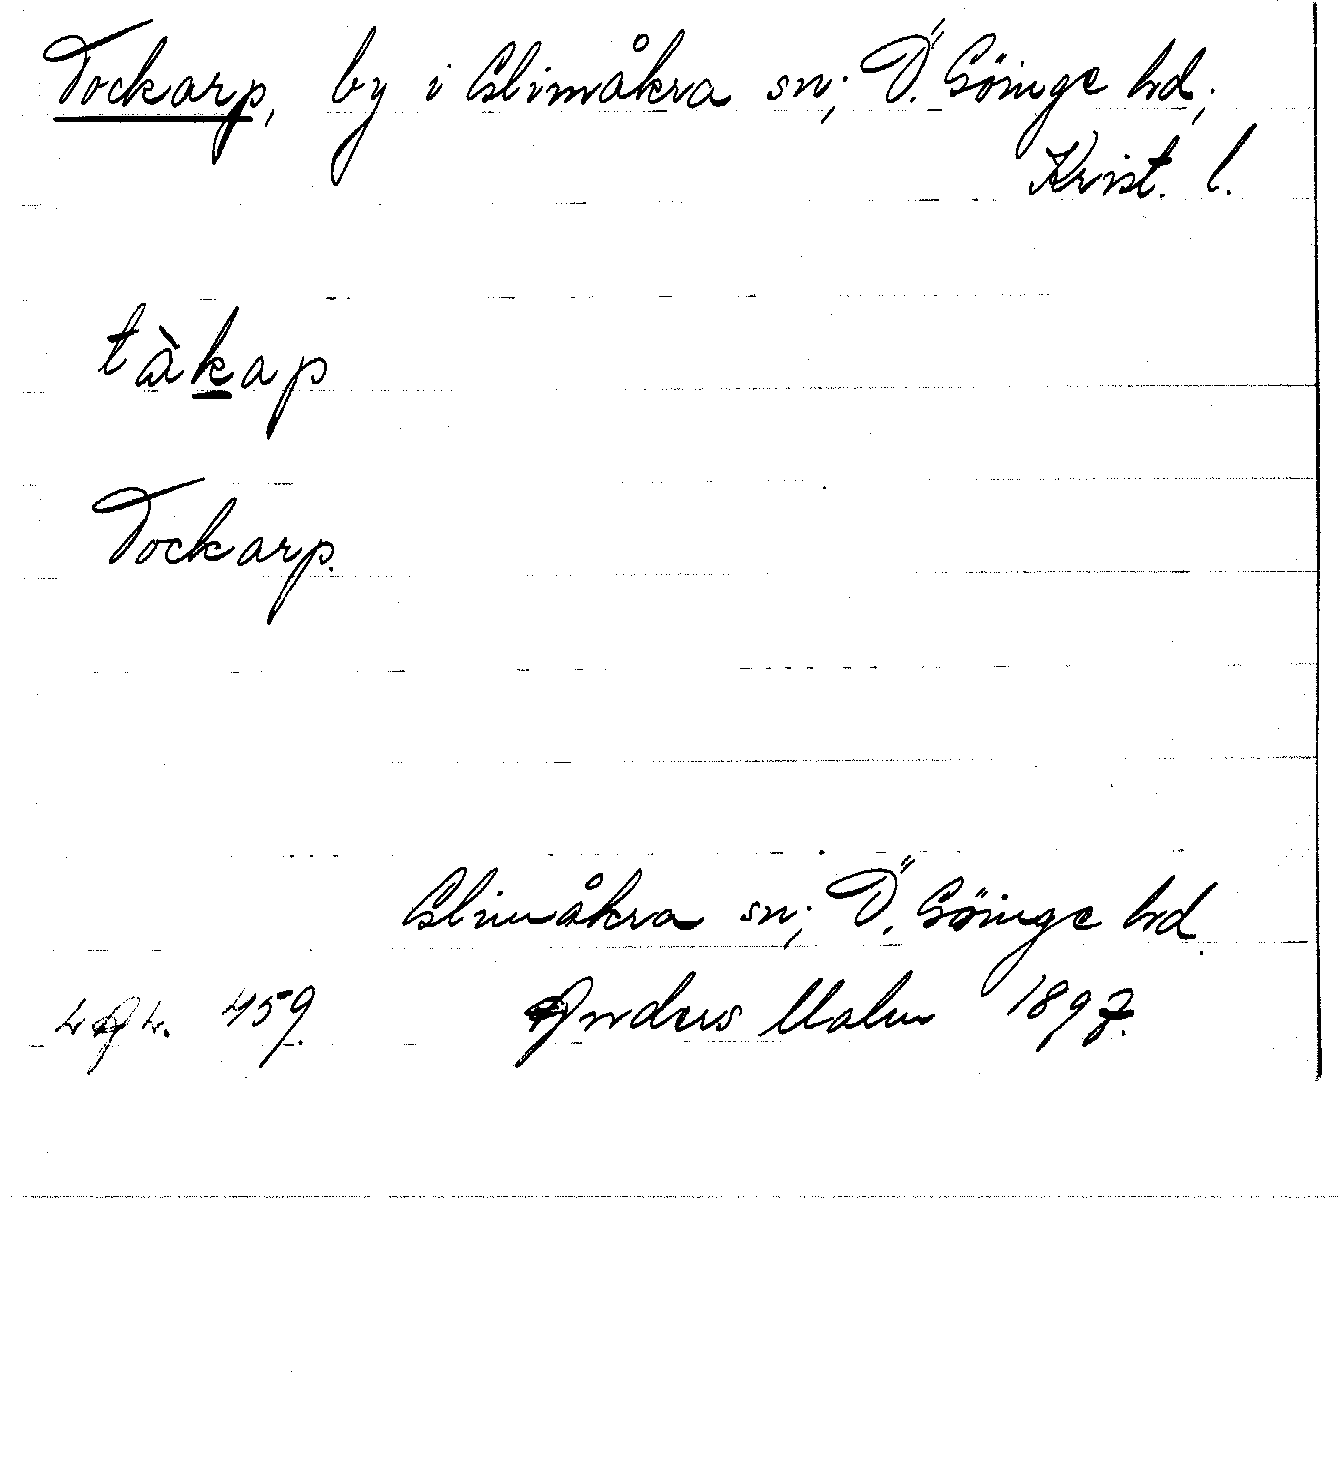 Tockarp, by i Glimåkra sn; Ö. Göinge hd;
Krist. l.
tàkap
Tockarp.
Glimåkra sn; Ö. Göinge hd.
459. Anders Malm 1897.